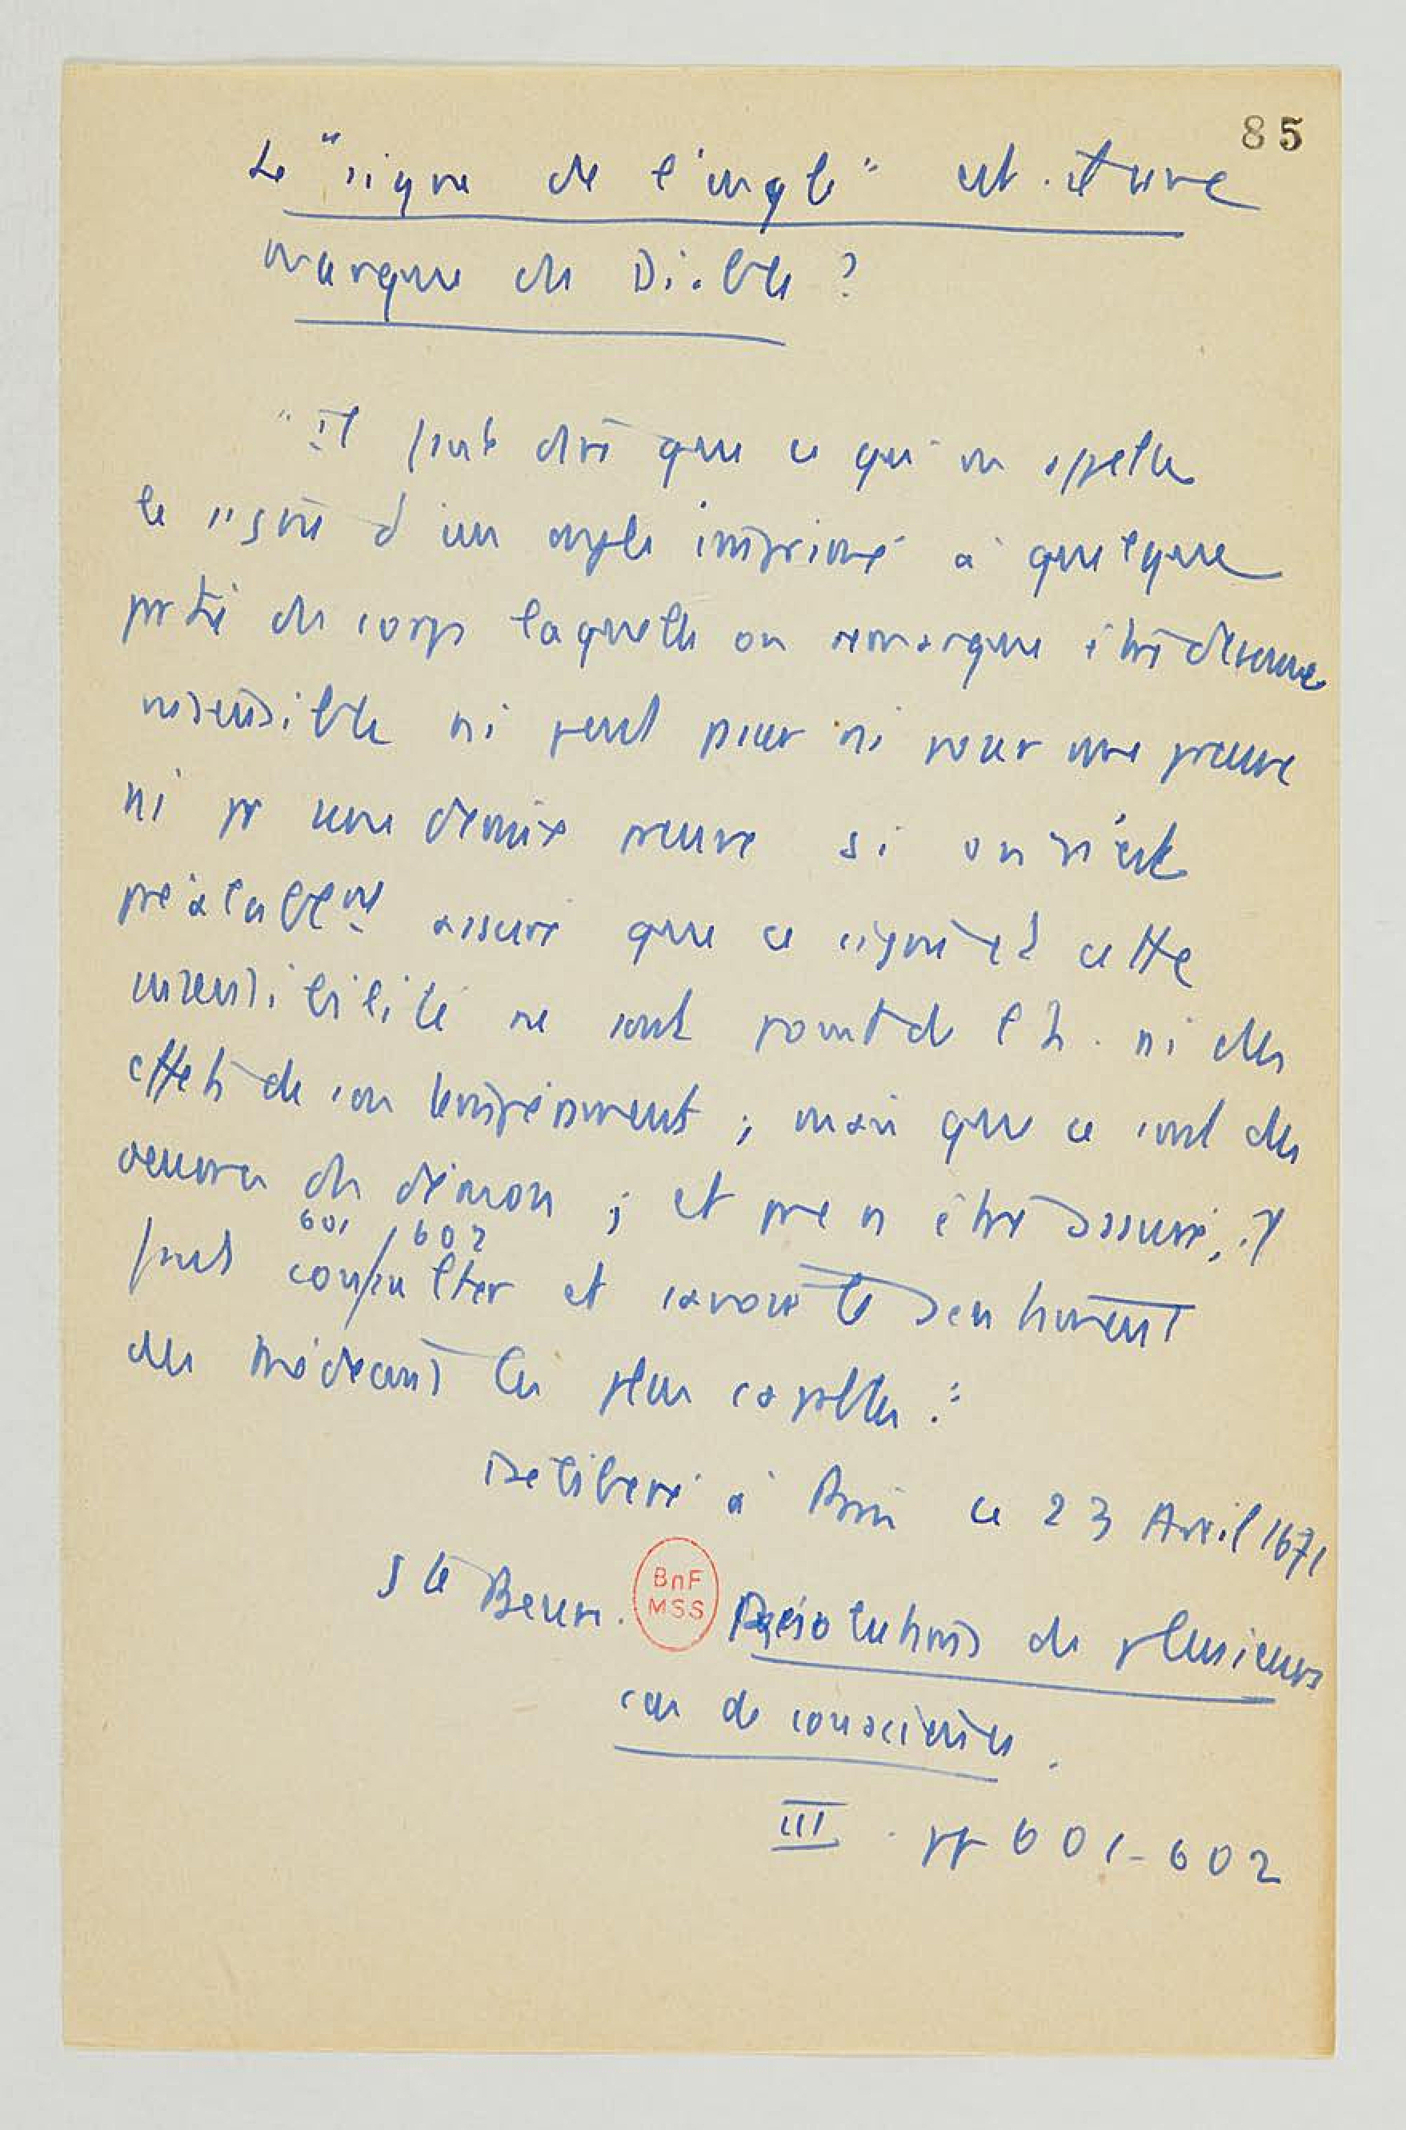 85
Le "signe de l'ongle" est-il une
marque du Diable ?
"Il faut dire que ce qu'on appelle
le signe d'un ongle imprimé à quelque
partie du corps laquelle on remarque être devenue
insensible ni peut passer ni pour une preuve
ni pr une demie preuve si on n'est
préalablemt assuré que ce signe et cette
insensibilité ne sont point de l'h. ni des
effets de son tempérament ; mais que ce sont des
oeuvres du démon ; et pour en être assuré, il
601 / 602
faut consulter et savoir le sentiment
des médecins les plus capables."
Délibéré à Paris ce 23 Avril 1671
Ste Beuve.
BnF
MSS
Résolutions de plusieurs
cas de conscience.
III . pp 601-602